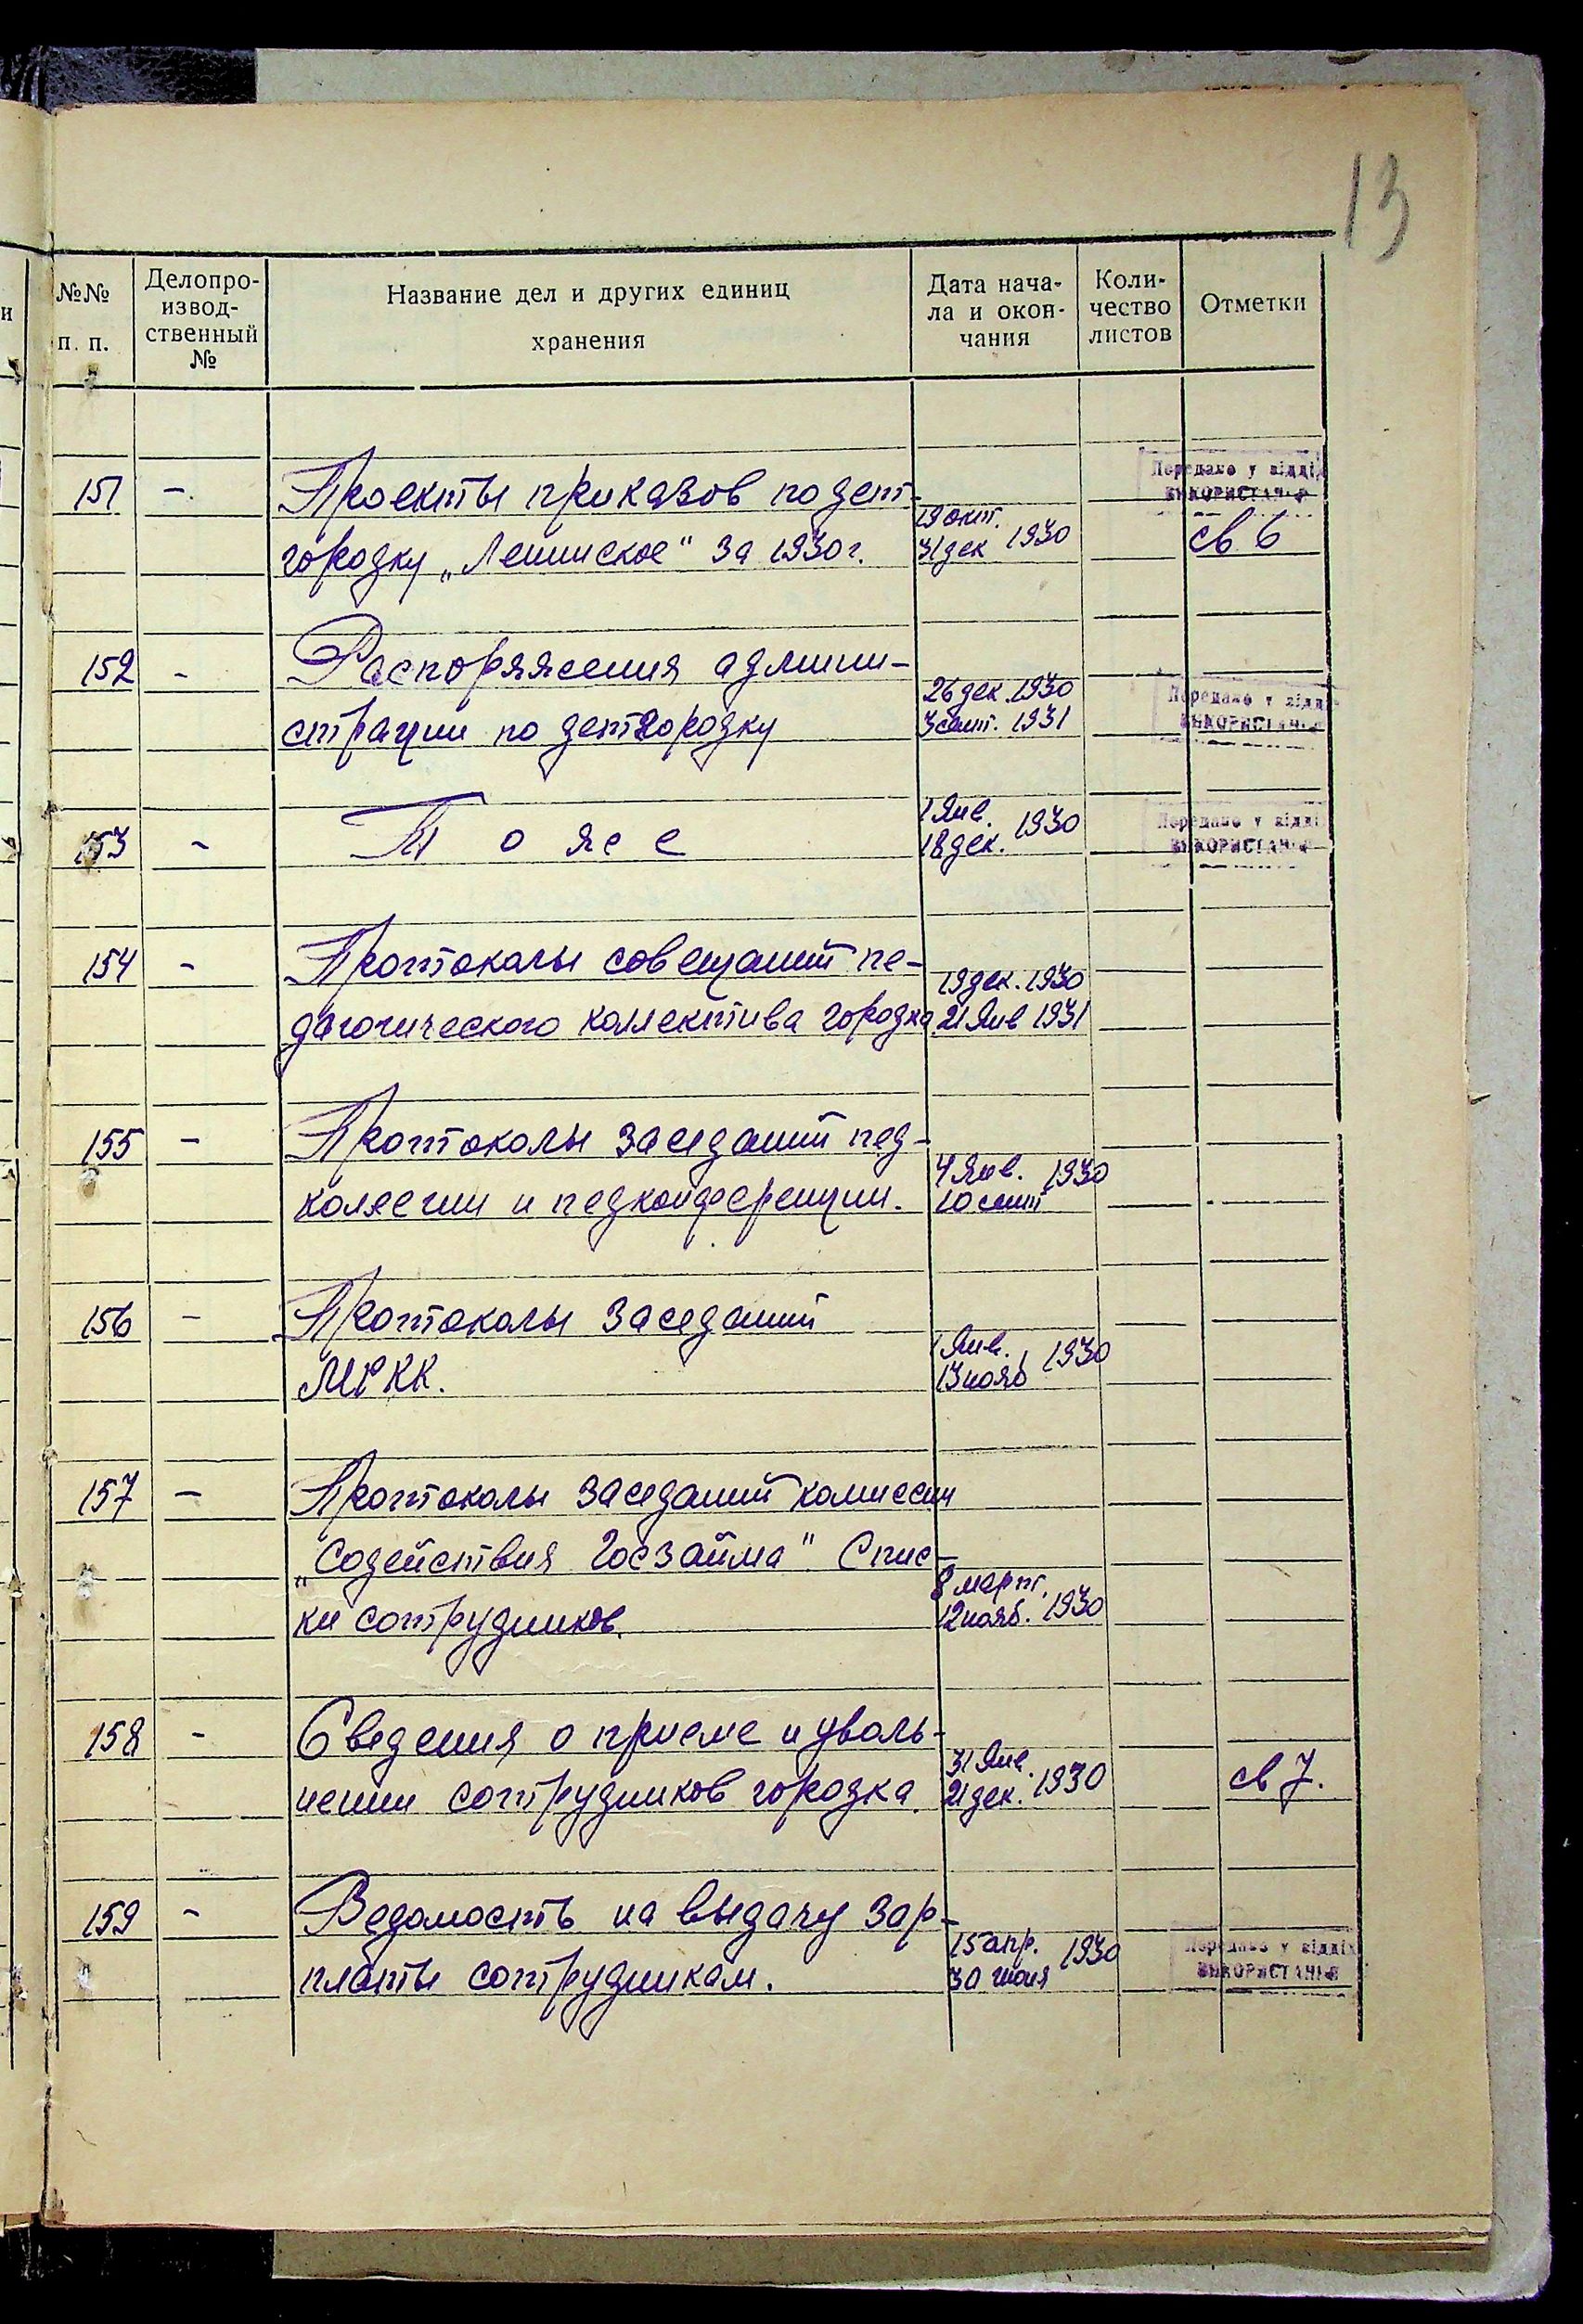 13
и
№№
п. п.
Делопро-
извод-
ственный
№
Название дел и других единиц
хранения
Дата нача-
ла и окон-
чания
Коли-
чество
листов
Отметки
151 - Проекты приказов по дет-
городку „Ленинское" за 1930 г.
19 окт.
31 дек 1930
Передано у відділ
використання
св 6
152 - Распоряжения админи-
страции по детгородку
26 дек. 1930
3 сент. 1931
Передано у відділ
використання
153 - То же
1 Янв.
18 дек. 1930
Передано у відділ
використання
154 - Протоколы совещаний пе-
дагогического коллектива городка
19 дек. 1930
21 Янв 1931
155 - Протоколы заседаний пед-
коллегии и педконференции.
4 Янв. 1930
10 сент
156 - Протоколы заседаний
МРКК.
1 Янв.
13 нояб 1930
157 - Протоколы заседаний комиссии
„Содействия Госзайма". Спис-
ки сотрудников.
8 март.
12 нояб. 1930
158 - Сведения о приеме и уволь-
нении сотрудников городка.
31 Янв.
21 дек. 1930
св 7.
159 - Ведомость на выдачу зар-
платы сотрудникам.
15 апр. 1930
30 июня
Передано у відділ
використання